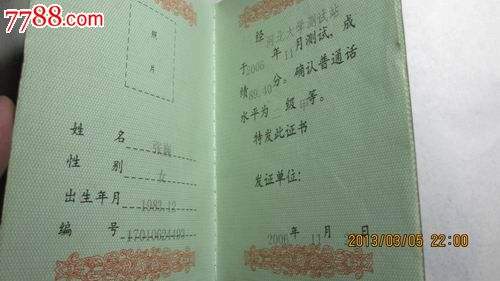 7788.com
照
片
姓 名 张巍
性 别 女
出生年月 1983.12
编 号 17010624403
经 河北大学测试站
于2006 年 11月测试，成
绩89.40分。确认普通话
水平为 二 级 甲 等。
特发此证书
发证单位：
2006 年 11 月 日
2013/03/05 22:00